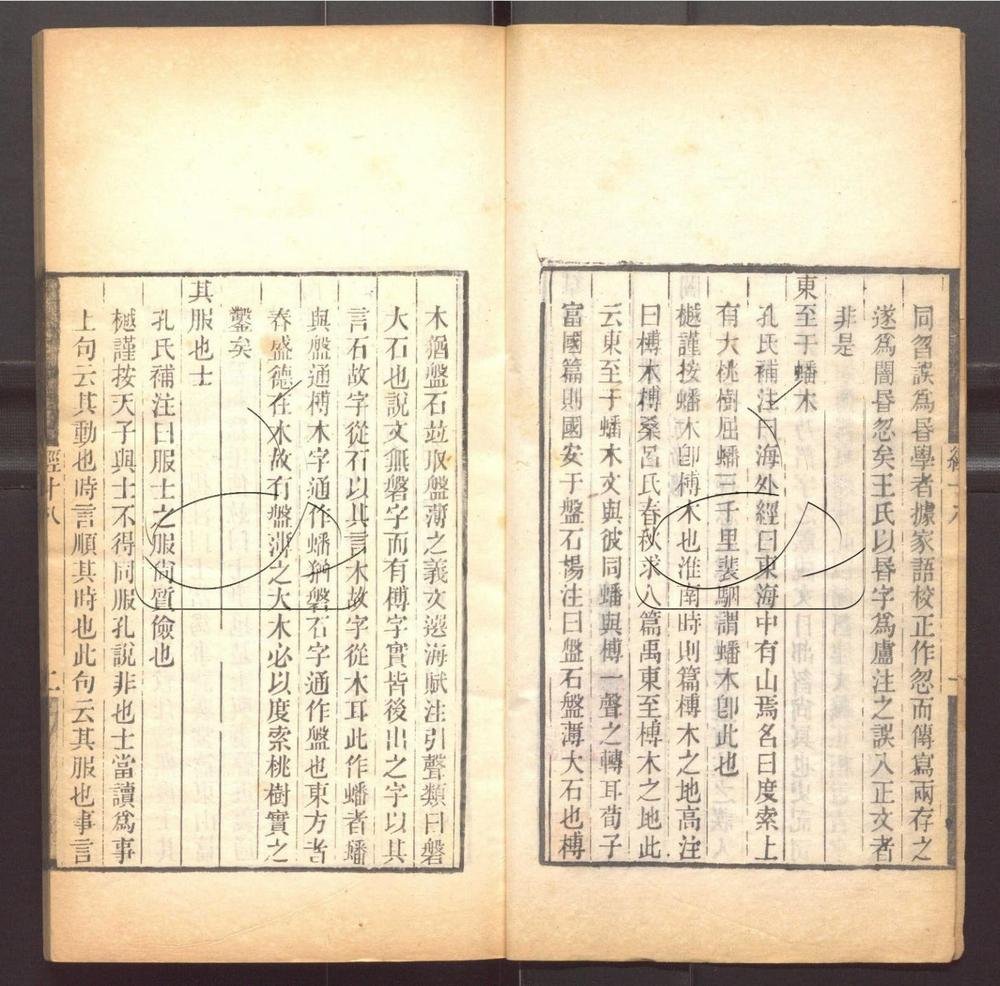 同曶誤爲昬學者據家語校正作忽而傳寫兩存之
遂爲闇昬忽矣王氏以昬字爲盧注之誤入正文者
非是
東至于蟠木
孔氏補注曰海外經曰東海中有山焉名曰度索上
有大桃樹屈蟠三千里裴駰謂蟠木卽此也
樾謹按蟠木卽榑木也淮南時則篇榑木之地高注
曰榑木榑桑呂氏春秋求人篇禹東至榑木之地此
云東至于蟠木文與彼同蟠與榑一聲之轉耳荀子
富國篇則國安于盤石楊注曰盤石盤薄大石也榑
木猶盤石竝取盤薄之義文選海賦注引聲類曰磐
大石也說文無磐字而有榑字實皆後出之字以其
言石故字從石以其言木故字從木耳此作蟠者蟠
與盤通榑木字通作蟠猶磐石字通作盤也東方者
春盛德在木故有盤薄之大木必以度索桃樹實之
鑿矣
其服也士
孔氏補注曰服士之服尚質儉也
樾謹按天子與士不得同服孔說非也士當讀爲事
上句云其動也時言順其時也此句云其服也事言
經十八
二